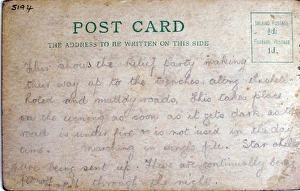 5194
POST CARD
THE ADDRESS TO BE WRITTEN ON THIS SIDE
INLAND POSTAGE
½d.
FOREIGN POSTAGE
1d.
This shows the relief party making
their way up to the trenches along the shell
holed and muddy roads, this takes place
in the evening as soon as it gets dark, as the
road is under fire & is not used in the day
time. Marching in single file. Star shells
are being sent up. These are continually being
through the night.